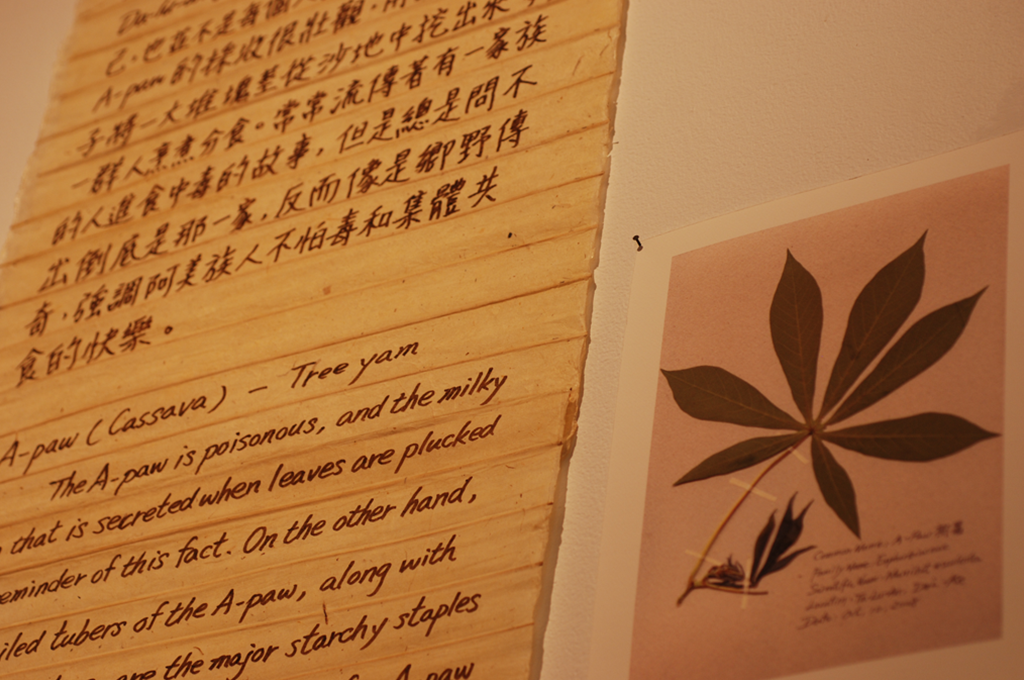 己，也並不是每個人
A-paw 的採收很壯觀，
子將一大堆塊莖從沙地中挖出來，
一群人烹煮分食。常常流傳著有一家族
的人進食中毒的故事，但是總是問不
出倒底是那一家，反而像是鄉野傳
奇，強調阿美族人不怕毒和集體共
食的快樂。
A-paw (Cassava) – Tree yam
The A-paw is poisonous, and the milky
that is secreted when leaves are plucked
eminder of this fact. On the other hand,
iled tubers of the A-paw, along with
are the major starchy staples
A-paw
Common Name: A-Paw 樹薯
Family Name: Euphorbiaceae